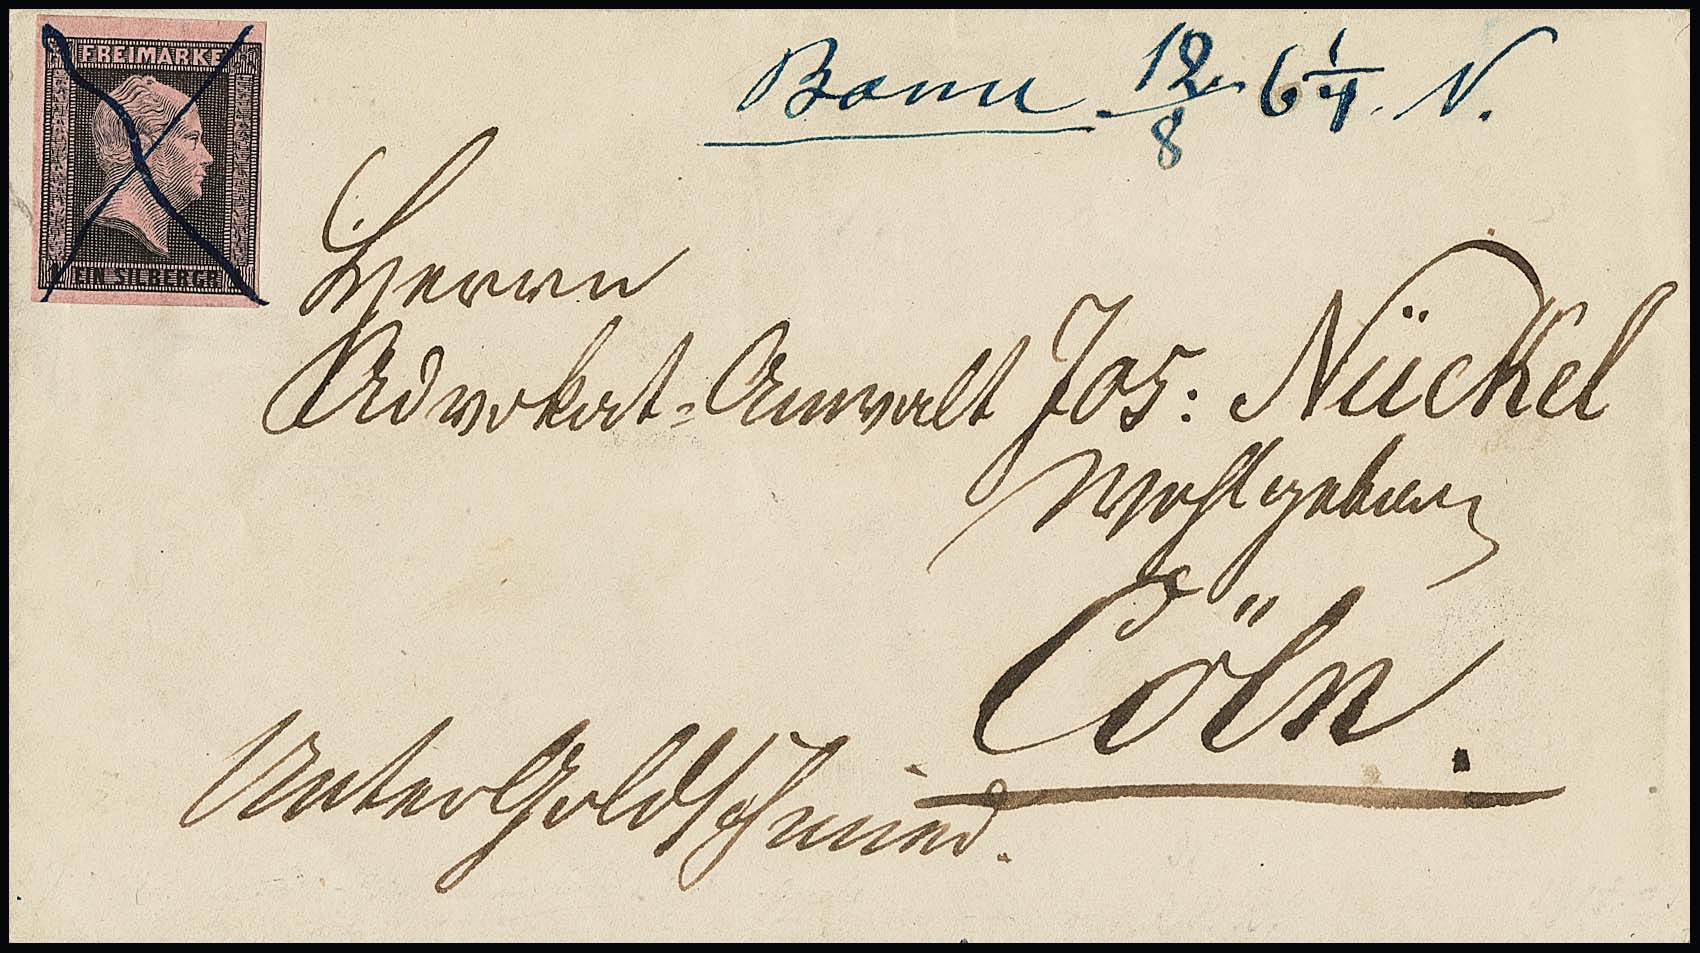 FREIMARKE
EIN SILBERGR.
Bonn 12/8 6 1/4 N.
Herrn
Advokat-Anwalt Jos: Nückel
Wohlgeboren
Cöln.
Unter Goldschmied.